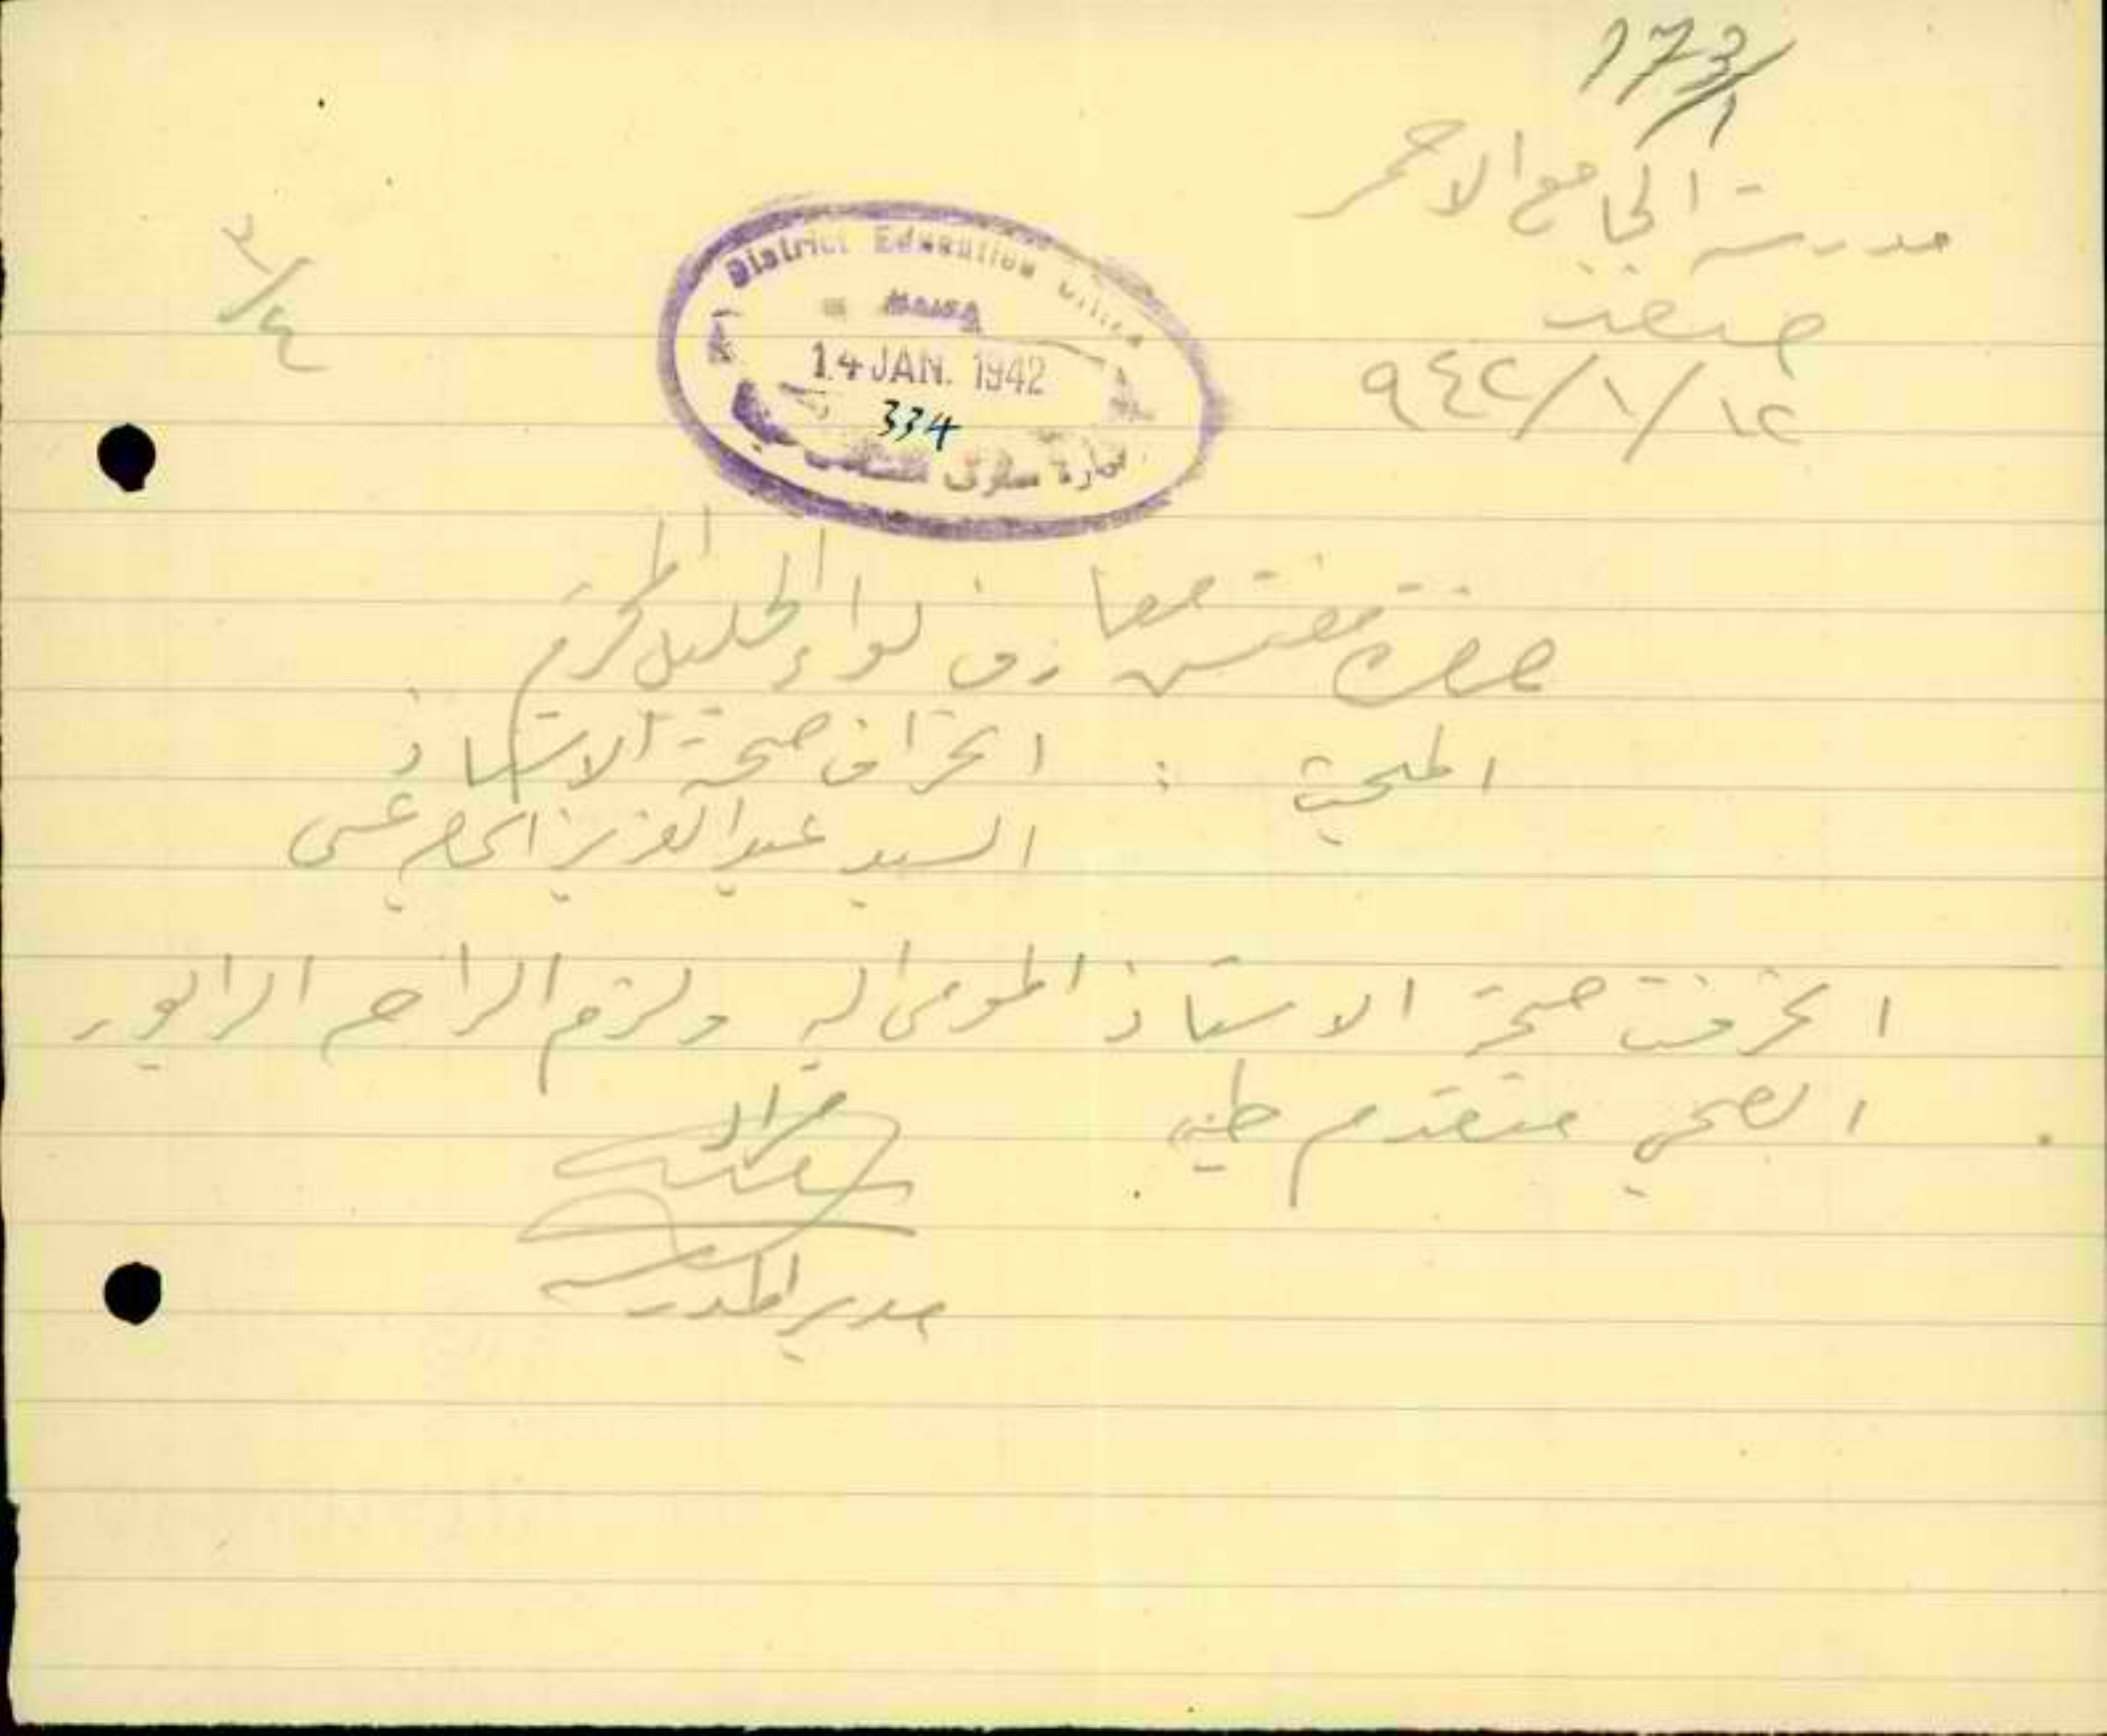 173/1
مدرسة الجامع الاحمر
صفد
٩٤٢/١/١٢
٣/٤
District Education Office
HAIFA
14 JAN. 1942
334
حضرة مفتش معارف لواء الجليل المحترم
المبحث : انحراف صحة الاستاذ
السيد عبد العزيز
انحرفت صحة الاستاذ المومى اليه ولزم الراحه الرابور
الصحي سنقدم طيه
مدير المدرسه